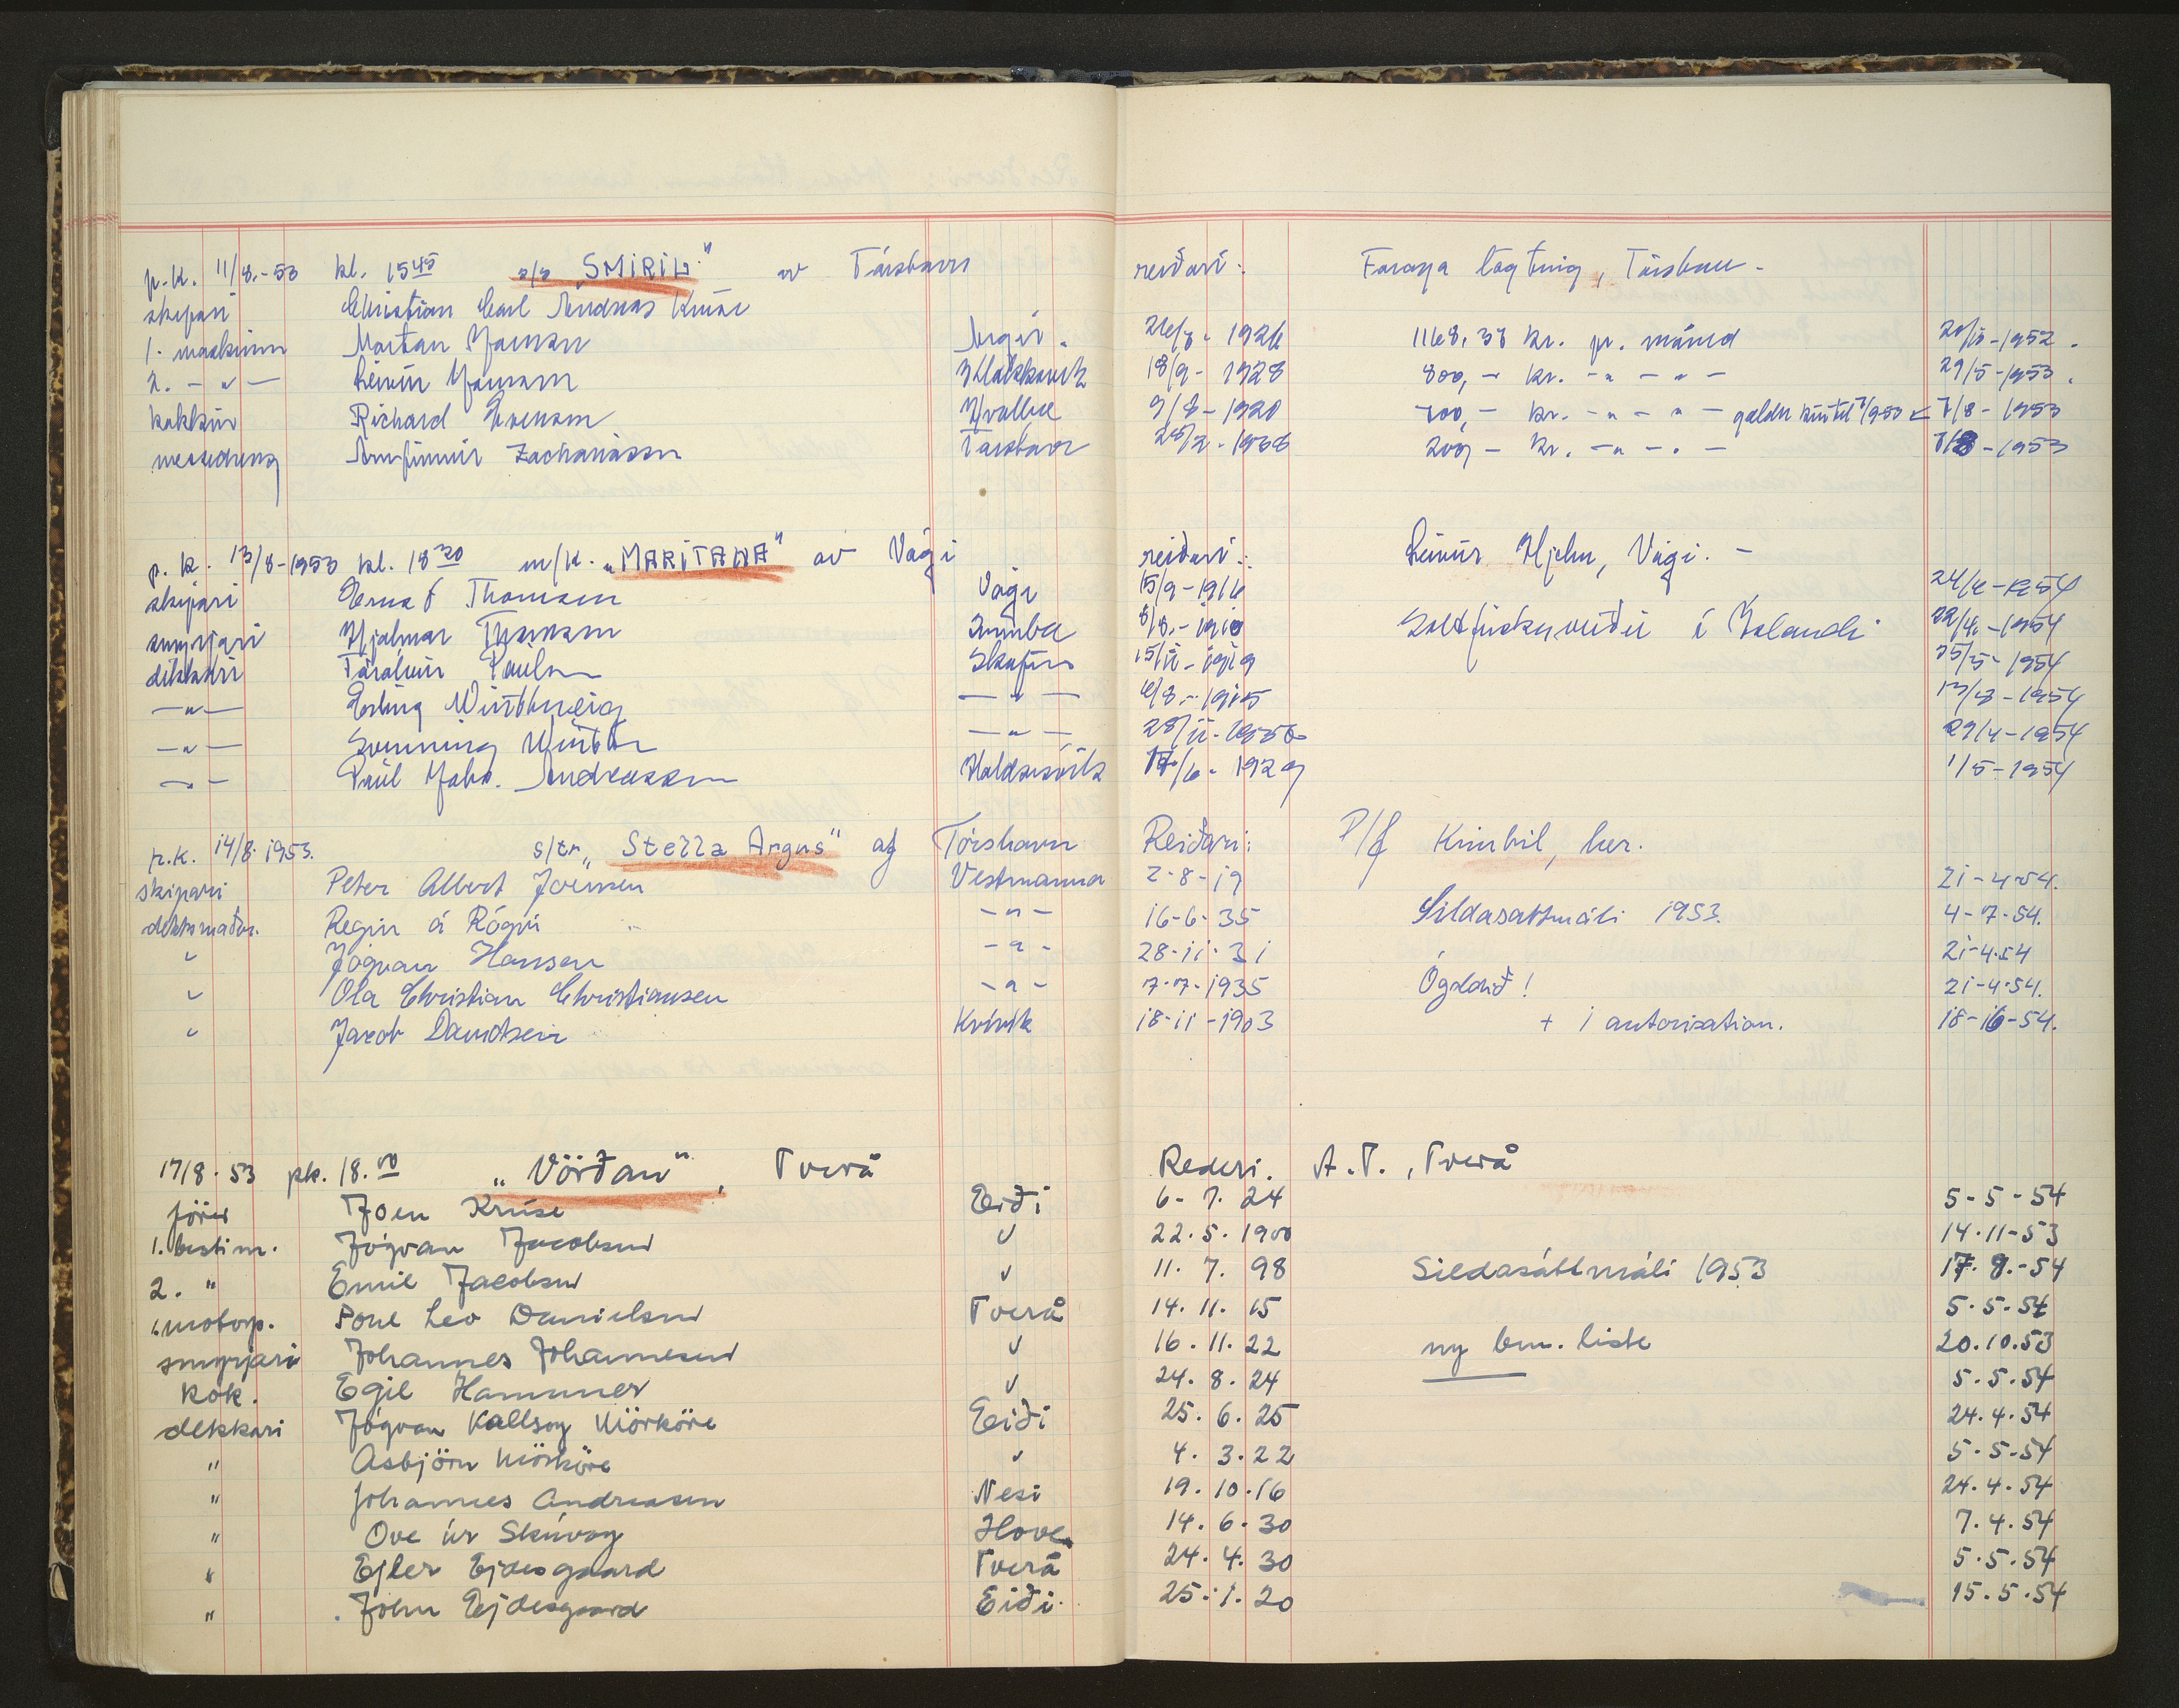 p.k. 11/8.-53 kl. 15 45 s/s SMIRIL" av Tórshavn reiðari: Føroya løgting, Tórshavn -
skipari Christian Carl Andreas Kruse
1. maskinm Mortan Joensen Argir. 1926 1168,38 kr. pr. mánad 1952.
2. -"- Leivur Joensen Klakksvík 18/9- 1928 800,- kr. -"- "- 29/5-1953.
kokkur Richard Evensen Hvalba 9/8-1920 700,- kr. -"- "- galdu 7/8-1953
messedreng Arnfinnur Zachariasen Tórshavn 200,- kr. -"- "- -1953
p.k. 13/8-1953 kl. 18 30 m/k. „MARITANA" av Vági reiðari: Leivur Hjelm, Vági. -
skipari Ernst Thomsen Vági 15/9-1916 -1954
smyrjari Hjalmar Sumba Saltfiskaveiði í Íslandi -1954
dikkari Tóralvur Poulsen 15/11-1919 25/5-1954
-"- Erling Winthereig -"- -1954
-"- Svenning Winther -"- 29/4-1954
-"- Pául Joh. Andreasen Haldarsvík 17/6-1929 1/5-1954
p.k. 14/8. 1953. s/tr „Stella Argus" af Tórshavn Reiðari: P/f Kimbil, her.
skipari Peter Albert Joensen Vestmanna 2-8-19 21-4-54.
dekksmaður. Regin á Rógvi -"- 16-6-35 Sildasáttmáli 1953. 4-7-54.
" Jógvan Hansen -"- 28-11-31 21-4-54
" Ola Christian Christiansen -"- 7-7-1935 Ógaldið! 21-4-54.
" Jacob Davidsen Kvívík 18-11-1903 + 1 autorisation. 18-16-54.
17/8.53 pk. 18.00 „Vörðan", Tverå Rederi. A.T., Tverå
förer Joen Kruse Eiði 6-7.24 5-5-54
1. bestm. Jógvan Jacobsen " 22.5.1900 14.11-53
2. " Emil Jacobsen " 11.7.98 Sildasáttmáli 1953 17.8.-54
1. motorp. Poul Leo Danielsen Tverå 14.11.15 5.5.54
smyrjari Johannes Johannesen " 16.11.22 ny bm. liste 20.10.53
kok. Egil Hammer " 24.8.24 5.5.54
dekkari Jógvan Kallsoy Mörköre Eiði 25.6.25 24.4.54
" Asbjörn Mörköre " 4.3.22 5.5.54
" Johannes Andreasen Nesi 19.10.16 24.4.54
" Ove úr Skúvoy Hove. 14.6.30 7.4.54
" Ejler Ejdesgaard Tverå 24.4.30 5.5.54
" John Ejdesgaard Eiði. 25.1.20 15.5.54